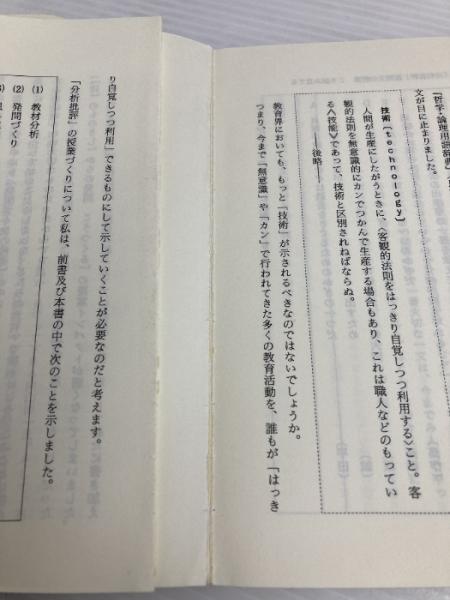 『哲学・論理用語辞典』
文が目に止まりました。
技術〔technology〕
人間が生産にしたがうときに、〈客観的法則をはっきり自覚しつつ利用する〉こと。客
観的法則を無意識的にカンでつかんで生産する場合もあり、これは職人などのもってい
る〈技能〉であって、技術と区別されねばならぬ。
――後略――
教育界においても、もっと「技術」が示されるべきなのではないでしょうか。
つまり、今まで「無意識」や「カン」で行われてきた多くの教育活動を、誰もが「はっき
り自覚しつつ利用」できるものにして示していくことが必要なのだと考えます。
「分析批評」の授業づくりについて私は、前書及び本書の中で次のことを示しました。
(1) 教材分析
(2) 発問づくり